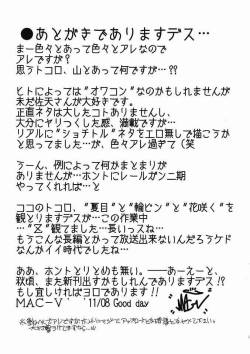 ●あとがきでありますデス…
まー色々とあって色々とアレなので
アレですが？
思うトコロ、山とあって何ですが…??
ヒトによっては"オワコン"なのかもしれませんが
未だ佐天さんが大好きです。
正直ネタは大したコトありませんし、
大分にヤリつくした感、満載ですが…
リアルに"ショチトル"ネタをエロ無しで描こうか
と思ってましたが…、色々アレ過ぎて(笑
うーん、例によって何がまとまりが
ありませんが…ホントにレールガン二期
やってくれれば…と
ココのトコロ、"夏目"と"輪ピン"と"花咲く"を
観とりますデスが…この作業中
…"Z"観てました…長いっスね…
もうこんな長編とかって放送出来ないんだろうケド
なんかイイ時代でしたね…
ああ、ホントとりとめも無い。――あーえーと、
秋頃、また新刊出すかもしれんでありますデス、
もし宜しければヨロであります!!
MAC-V '11/08 Good day